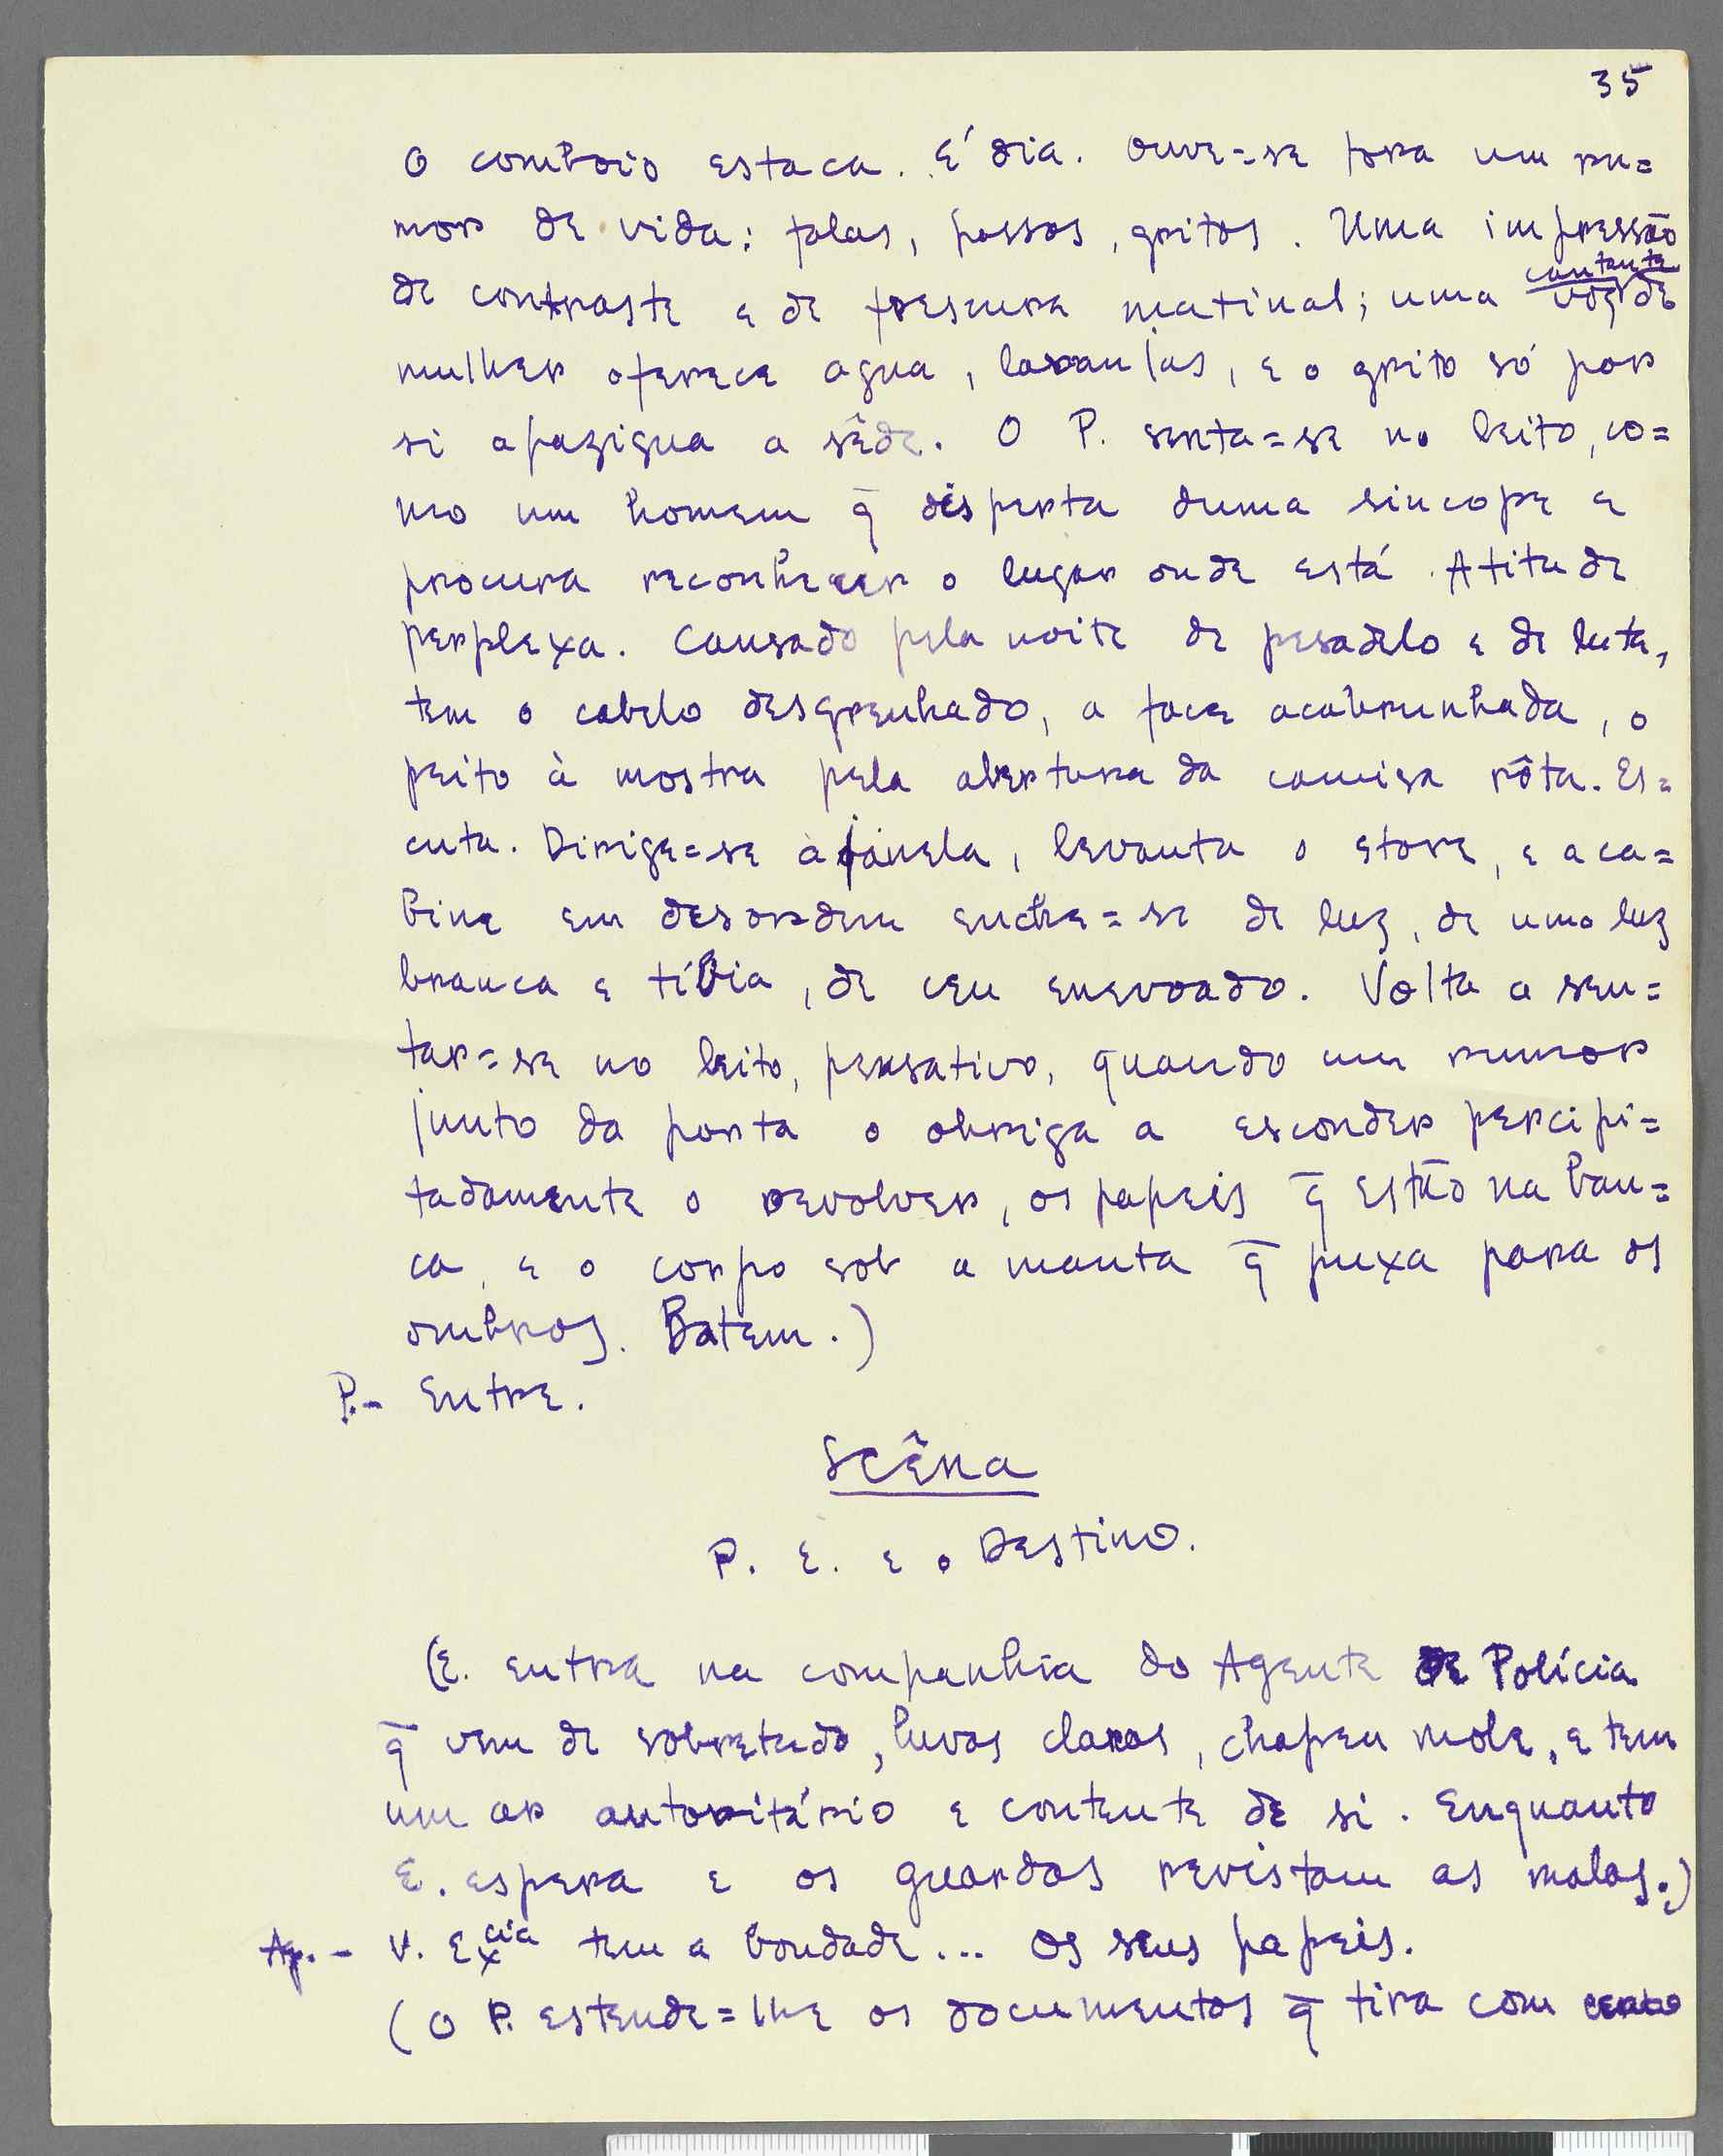 35
O comboio estaca. É dia. Ouve=se fora um ru=
mor de vida: falas, passos, gritos. Uma impressão
de contraste e de frescura matinal; uma voz cantante de
mulher oferece agua, laranjas, e o grito só por
si apazigua a sêde. O P. senta=se no leito, co=
mo um homem q̄ disperta duma sincope e
procura reconhecer o lugar onde está. Atitude
perplexa. Cansado pela noite de pesadelo e de luta,
tem o cabelo desgrenhado, a face acabrunhada, o
peito à mostra pela abertura da camisa rôta. Es=
cuta. Dirige=se à janela, levanta o store, e a ca=
bine em desordem enche=se de luz, de uma luz
branca e tíbia, de ceu enevoado. Volta a sen=
tar=se no leito, pensativo, quando um rumor
junto da porta o obriga a esconder percipi=
tadamente o revolver, os papeis q̄ estão na ban=
ca, e o corpo sob a manta q̄ puxa para os
ombros. Batem.)
P.- Entre.
Scêna
P. E. e o Destino.
(E. entra na companhia do Agente de Polícia
q̄ vem de sobretudo, luvas claras, chapeu mole, e tem
um ar autoritário e contente de si. Enquanto
E. espera e os guardas revistam as malas.)
Ag. - V. Excia tem a bondade... Os seus papeis.
(O P. estende=lhe os documentos q̄ tira com